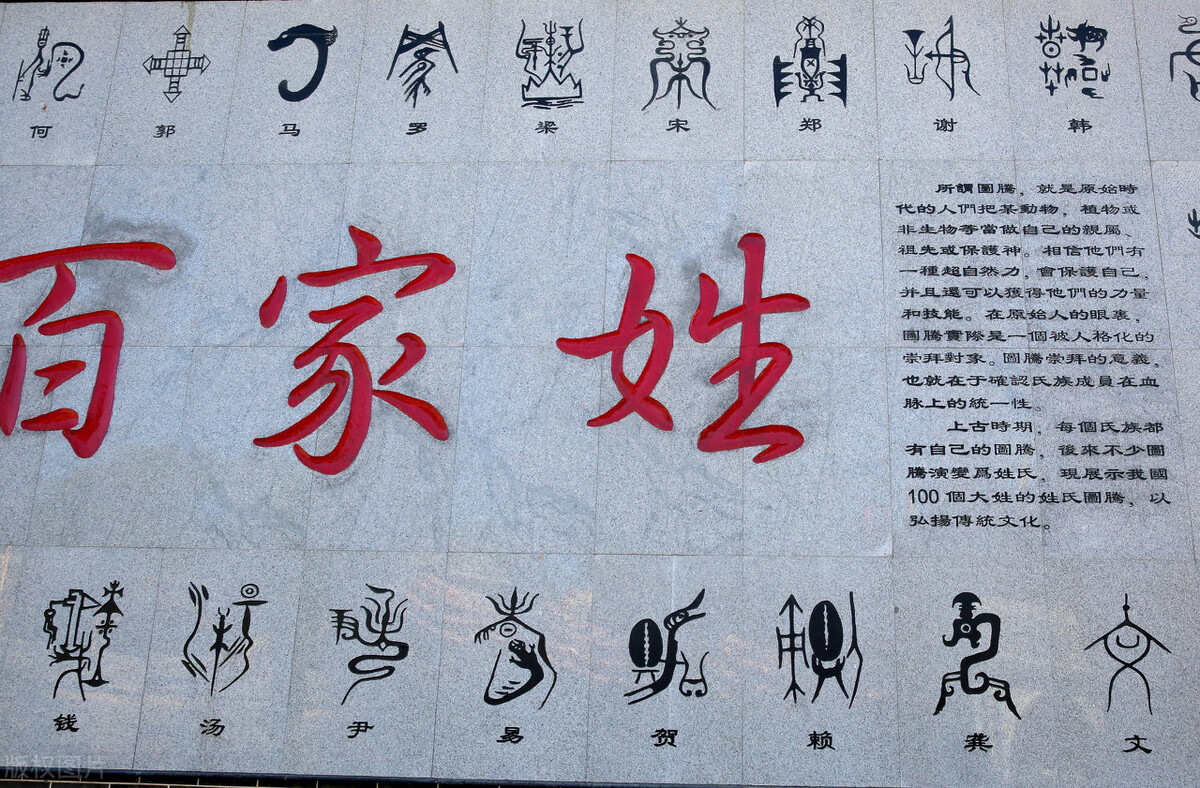 何 郭 马 罗 梁 宋 郑 谢 韩
百家姓
所謂圖騰，就是原始時
代的人們把某動物，植物或
非生物等當做自己的親屬、
祖先或保護神。相信他們有
一種超自然力，會保護自己，
并且還可以獲得他們的力量
和技能。在原始人的眼裏，
圖騰實際是一個被人格化的
崇拜對象。圖騰崇拜的意義，
也就在于確認氏族成員在血
脉上的統一性。
上古時期，每個氏族都
有自己的圖騰，後來不少圖
騰演變爲姓氏，現展示我國
100個大姓的姓氏圖騰，以
弘揚傳統文化。
钱 汤 尹 易 贺 赖 龚 文
版权图片